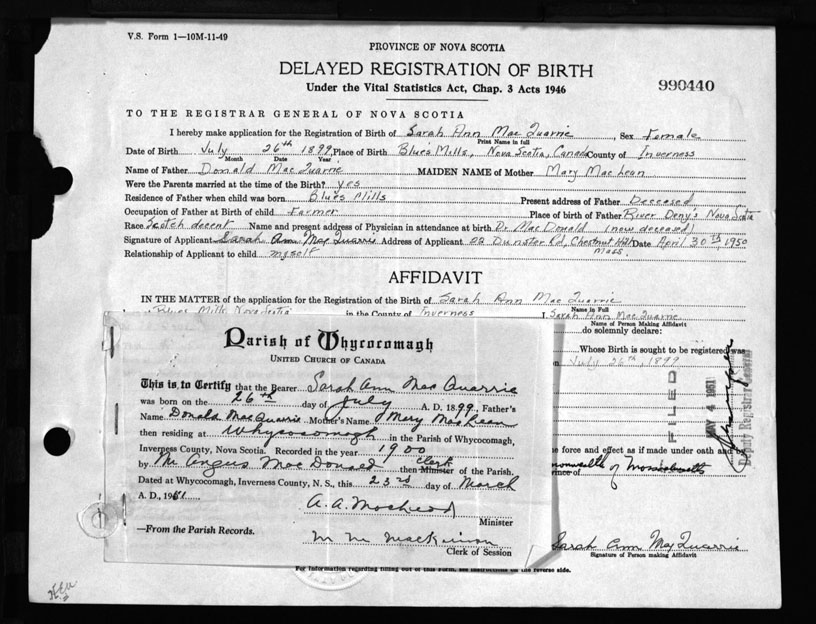 V.S. Form 1—10M-11-49
PROVINCE OF NOVA SCOTIA
DELAYED REGISTRATION OF BIRTH
990440
Under the Vital Statistics Act, Chap. 3 Acts 1946
TO THE REGISTRAR GENERAL OF NOVA SCOTIA
I hereby make application for the Registration of Birth of Sarah Ann MacQuarrie, Sex Female
Print Name in full
Date of Birth July 26th 1899, Place of Birth Blues Mills, Nova Scotia, Canada County of Inverness
Month Date Year
Name of Father Donald MacQuarrie MAIDEN NAME of Mother Mary MacLean
Were the Parents married at the time of the Birth? yes
Residence of Father when child was born Blues Mills Present address of Father Deceased
Occupation of Father at Birth of child Farmer Place of birth of Father River Deny's Nova Scotia
Race Scotch decent Name and present address of Physician in attendance at birth Dr. MacDonald (now deceased)
Signature of Applicant Sarah Ann MacQuarrie Address of Applicant 22 Dunster Rd, Chestnut Hill Date April 30th 1950
Mass.
Relationship of Applicant to child myself
AFFIDAVIT
IN THE MATTER of the application for the Registration of the Birth of Sarah Ann MacQuarrie
Name in Full
Blues Mills Nova Scotia in the County of Inverness I, Sarah Ann MacQuarrie
Name of Person Making Affidavit
do solemnly declare:
Whose Birth is sought to be registered was
on July 26th, 1899
FILED
MAY 4 1951
Deputy Registrar General
e force and effect as if made under oath and by
monwealth of Massachusetts
ince of
Parish of Whycocomagh
UNITED CHURCH OF CANADA
This is to Certify that the Bearer Sarah Ann MacQuarrie
was born on the 26th day of July A. D. 1899, Father's
Name Donald MacQuarrie Mother's Name Mary MacLean
then residing at Whycocomagh in the Parish of Whycocomagh,
Inverness County, Nova Scotia. Recorded in the year 1900
Clerk
by Mr Angus MacDonald then Minister of the Parish.
Dated at Whycocomagh, Inverness County, N. S., this 23rd day of March
A. D., 1951
A. A. MacLeod
Minister
—From the Parish Records.
M. M. MacKinnon
Clerk of Session
Sarah Ann MacQuarrie
Signature of Person making Affidavit
For information regarding filling out of this Form, see instructions on the reverse side.